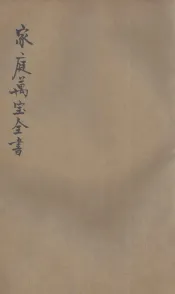 家庭萬宝全書